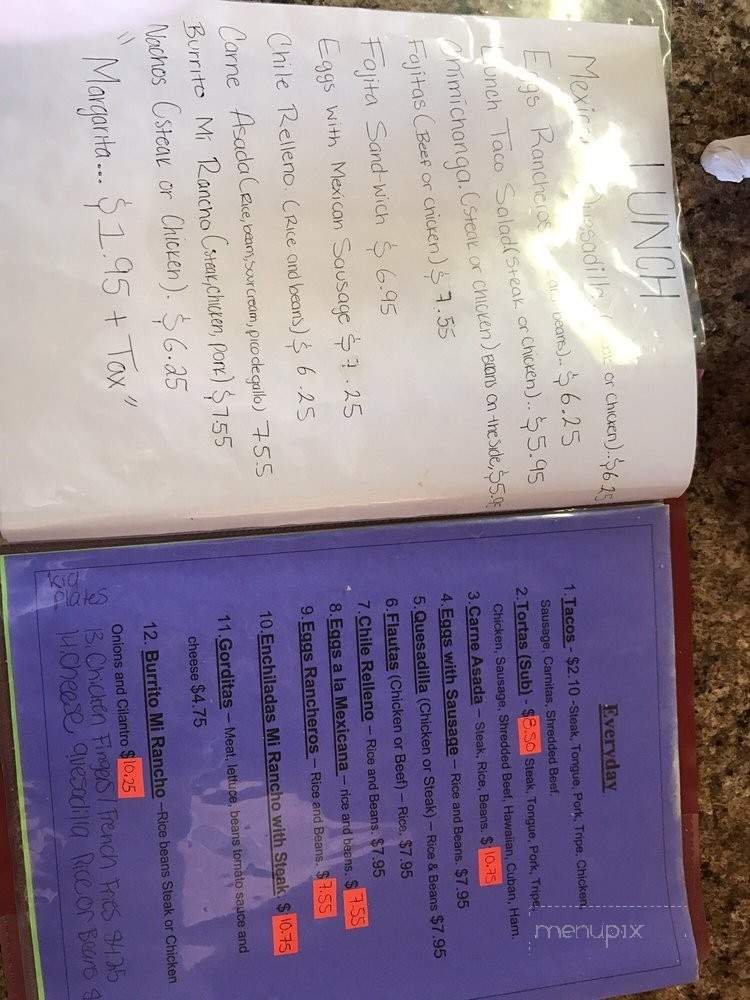 LUNCH
or chicken)..$6.25
Eggs Rancheros beans).. $6.25
Lunch Taco Salad(steak or chicken).. $5.95
Chimichanga. (steak or chicken) Beans on the side, $5.95
Fajitas (Beef or chicken) $7.55
Fajita Sand-wich $6.95
Eggs with Mexican Sausage $7.25
Chile Relleno. (Rice and beans) $6.25
Carne Asada (Rice, beans, sour cream, pico de gallo) 7.55
Burrito Mi Rancho (steak, chicken, pork) $7.55
Nachos (steak or Chicken). $6.25
" Margarita... $1.95 + Tax "
Everyday
1. Tacos - $2.10 -Steak, Tongue, Pork, Tripe, Chicken,
Sausage, Carnitas, Shredded Beef.
2. Tortas (Sub) - $8.50 Steak, Tongue, Pork, Tripe,
Chicken, Sausage, Shredded Beef, Hawaiian, Cuban, Ham.
3. Carne Asada – Steak, Rice, Beans. $10.75
4. Eggs with Sausage – Rice and Beans. $7.95
5. Quesadilla (Chicken or Steak) – Rice & Beans $7.95
6. Flautas (Chicken or Beef) – Rice. $7.95
7. Chile Relleno – Rice and Beans. $7.95
8. Eggs a la Mexicana – rice and beans. $7.55
9. Eggs Rancheros – Rice and Beans. $7.55
10. Enchiladas Mi Rancho with Steak $10.75
11. Gorditas – Meat, lettuce, beans tomato sauce and
cheese $4.75
12. Burrito Mi Rancho –Rice beans Steak or Chicken
Onions and Cilantro $10.25
13. Chicken Fingers / French Fries $4.25
14. Cheese quesadilla Rice or Beans $
menupix